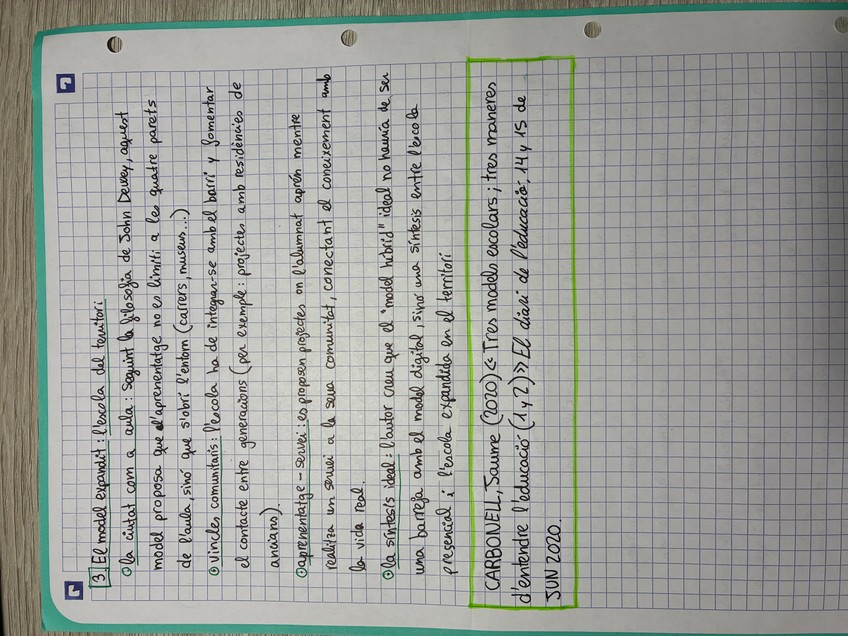 3 El model expandit: l'escola del territori
la ciutat com a aula: seguint la filosofia de John Dewey, aquest
model proposa que l'aprenentatge no es limiti a les quatre parets
de l'aula, sinó que s'obri l'entorn (carrers, museus...)
vincles comunitaris: l'escola ha de integrar-se amb el barri y fomentar
el contacte entre generacions (per exemple: projectes amb residències de
ancians).
aprenentatge-servei: es proposen projectes on l'alumnat aprén mentre
realitza un servei a la seua comunitat, conectant el coneixement amb
la vida real.
la síntesis ideal: l'autor creu que el "model híbrid" ideal no hauria de ser
una barreja amb el model digital, sinó una síntesis entre l'escola
presencial i l'escola expandida en el territori
CARBONELL, Jaume (2020) <<Tres models escolars; tres maneres
d'entendre l'educació (1 y 2)>> El diari de l'educació, 14 y 15 de
JUN 2020.